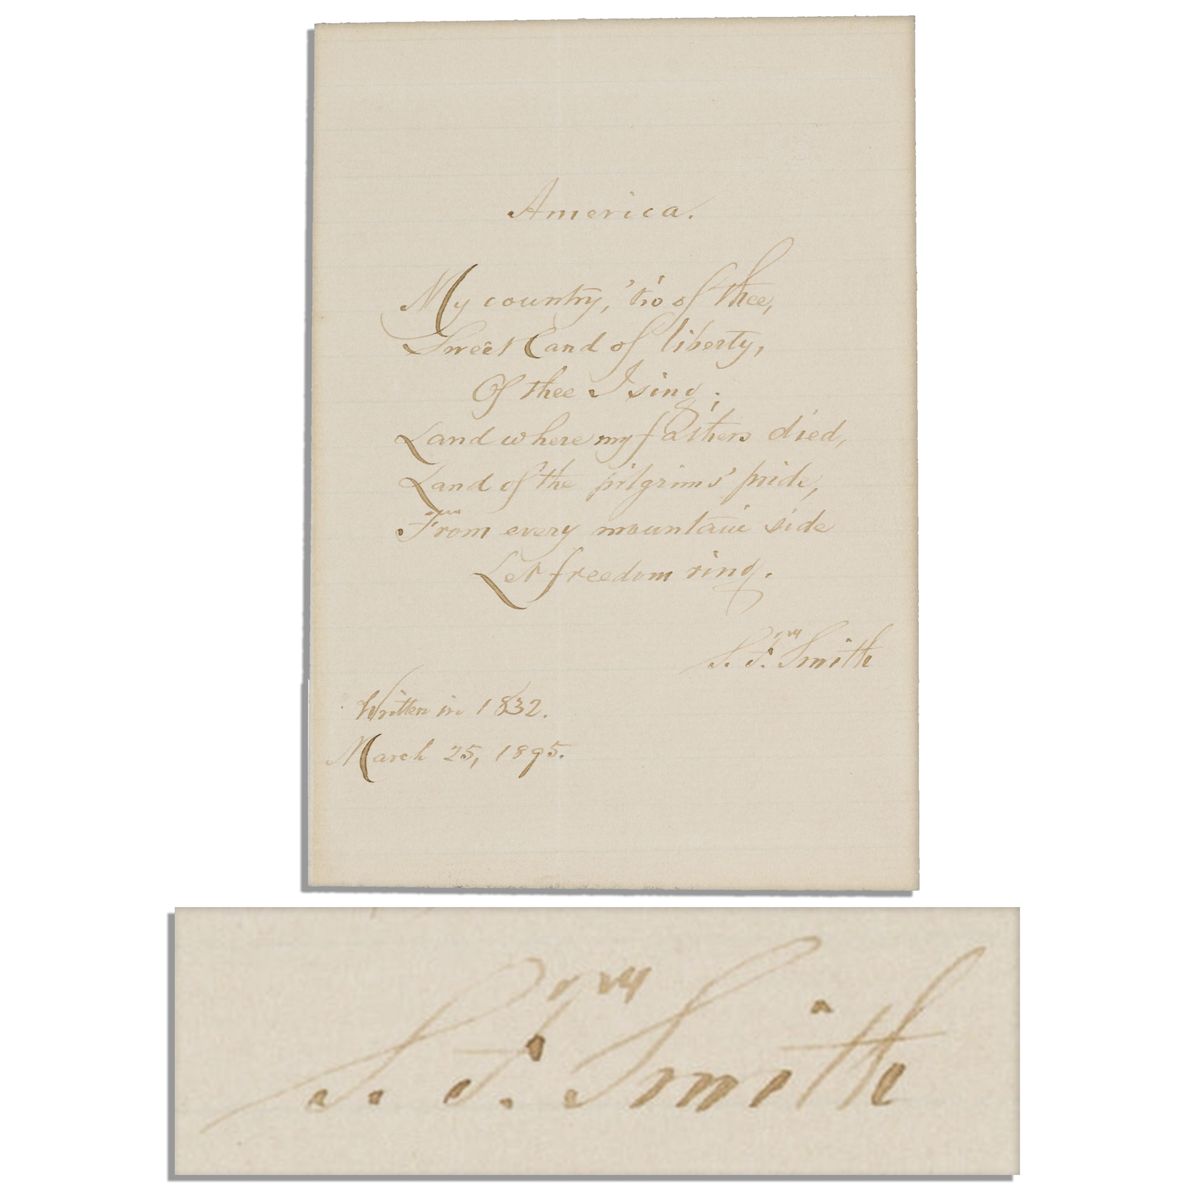 America.
My country, 'tis of thee,
Sweet Land of liberty,
Of thee I sing;
Land where my fathers died,
Land of the pilgrims' pride,
From every mountain side
Let freedom ring.
S. F. Smith
Written in 1832.
March 25, 1895.
S. F. Smith